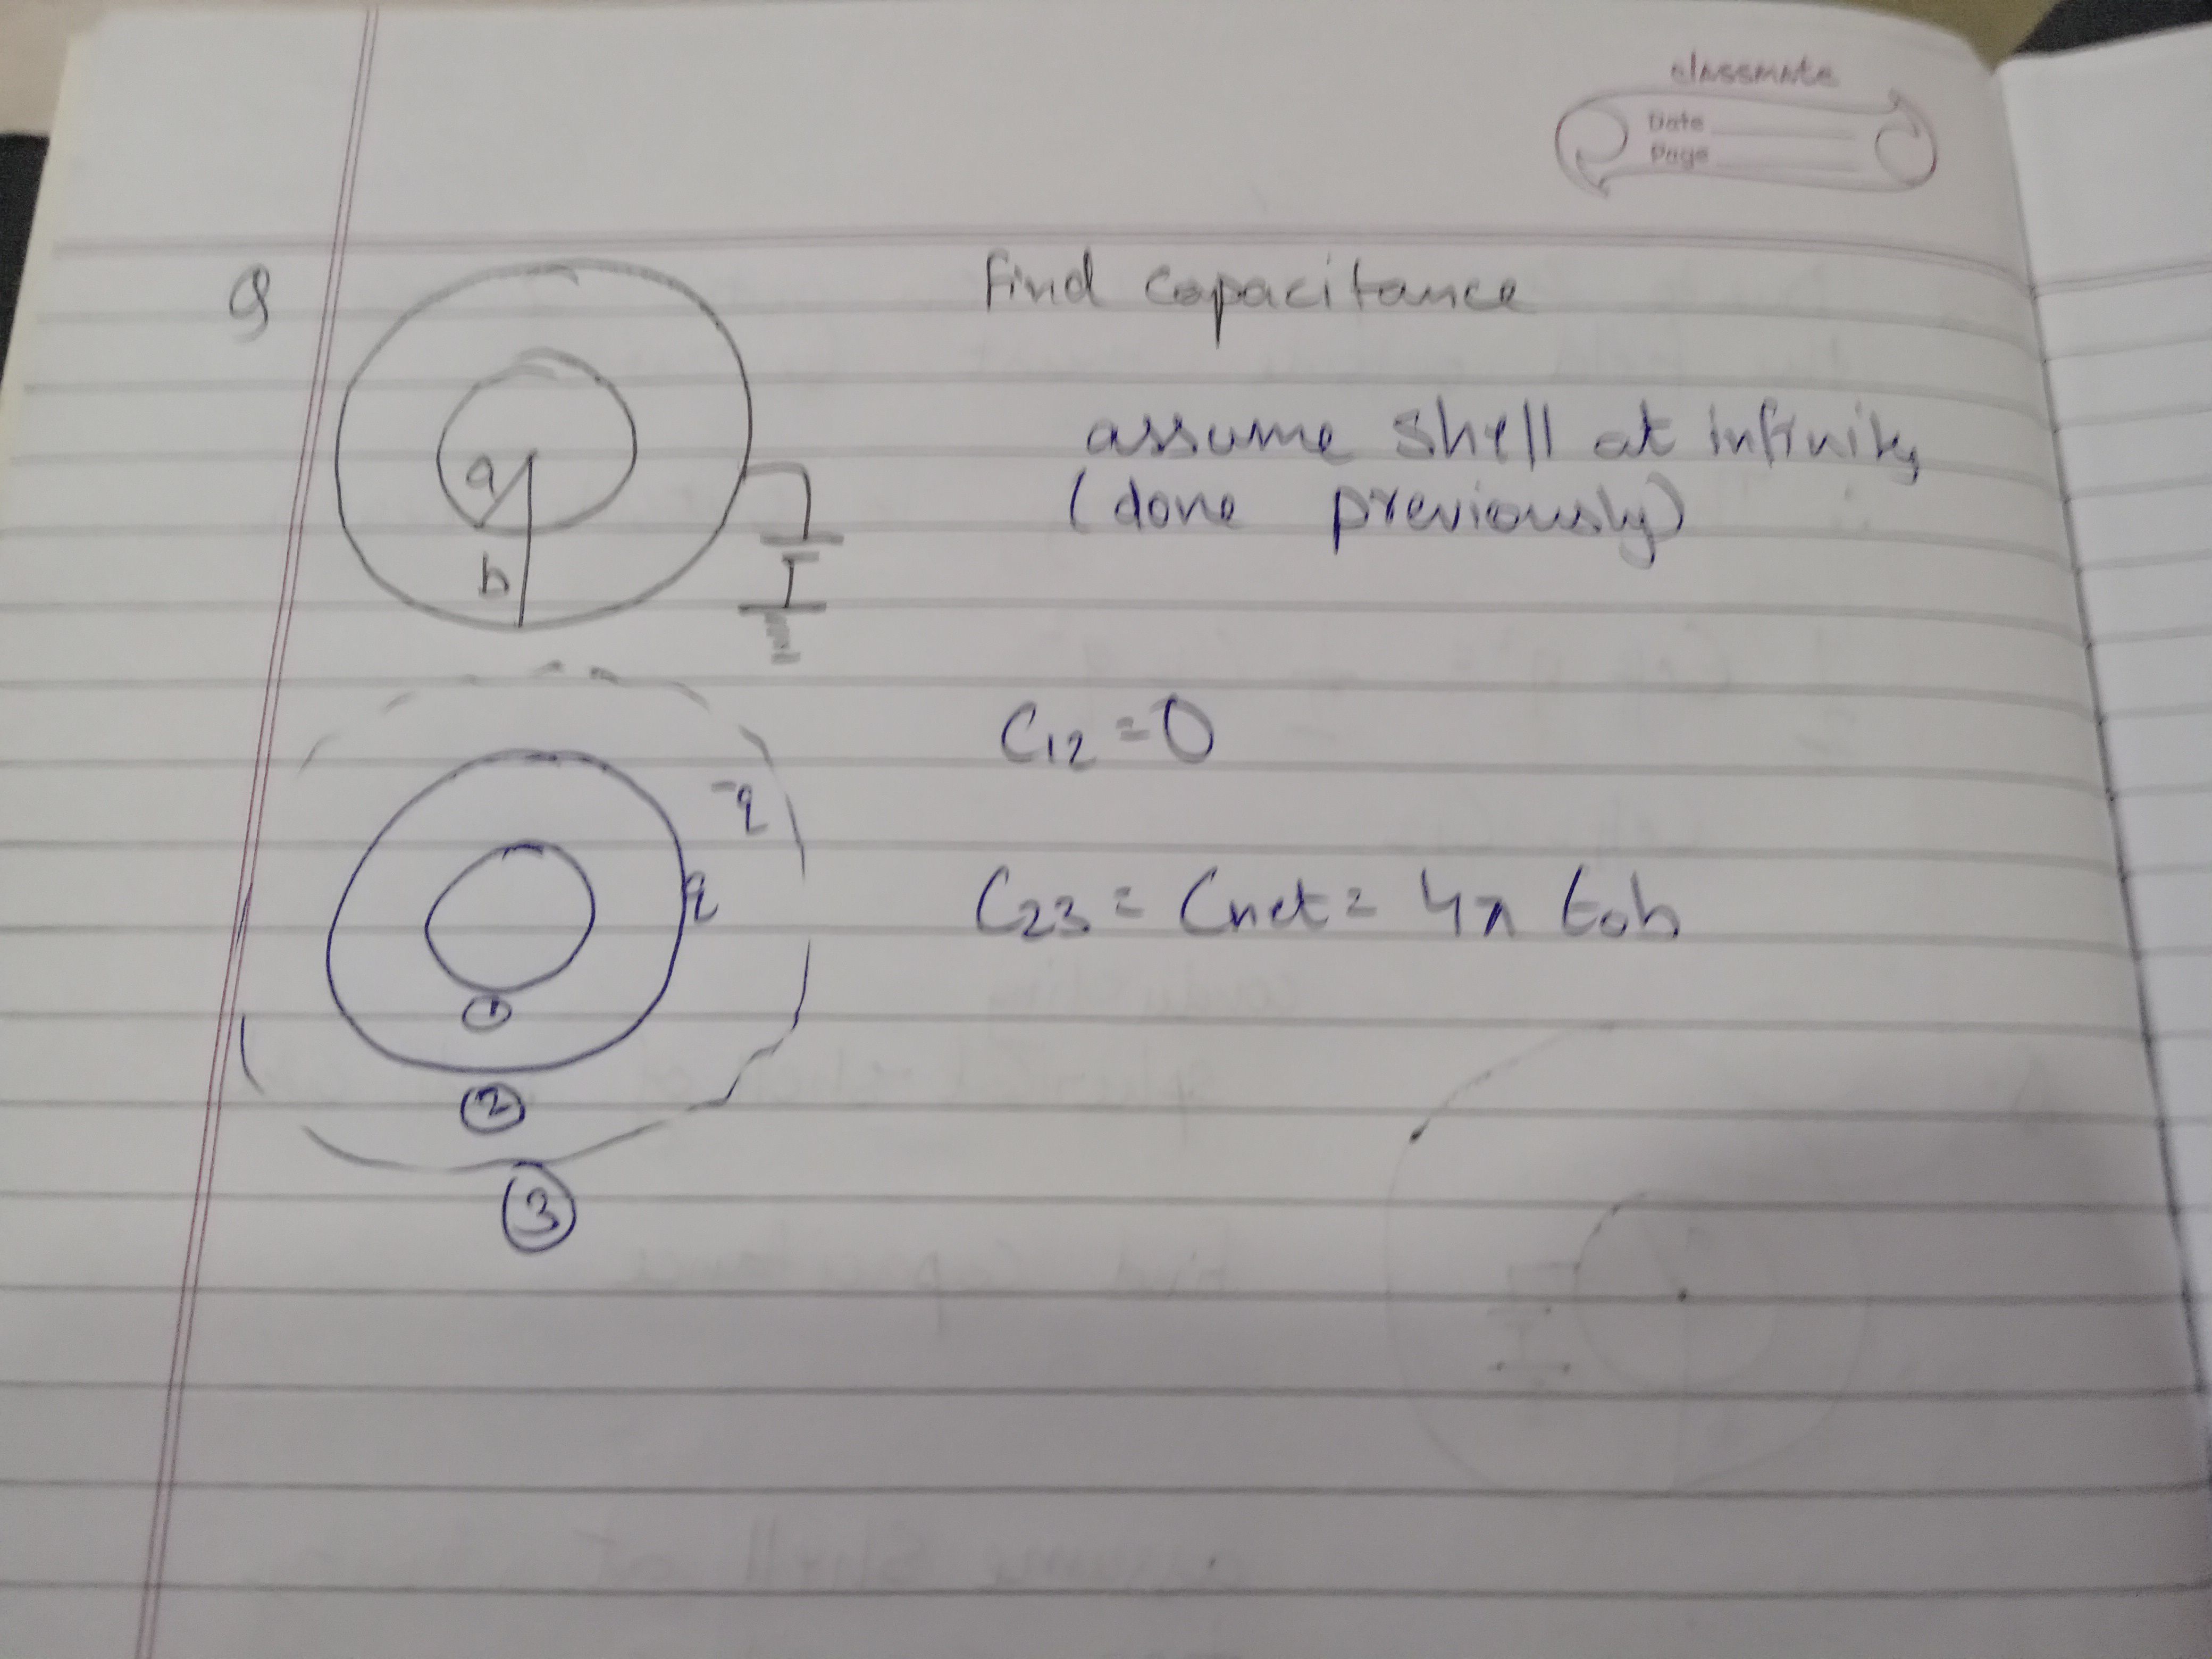 classmate
Date
Page
Q
Find capacitance
a
b
assume shell at infinity
(done previously)
C₁₂ = 0
-q
q
C₂₃ = Cnet = 4π ε₀b
1
2
3